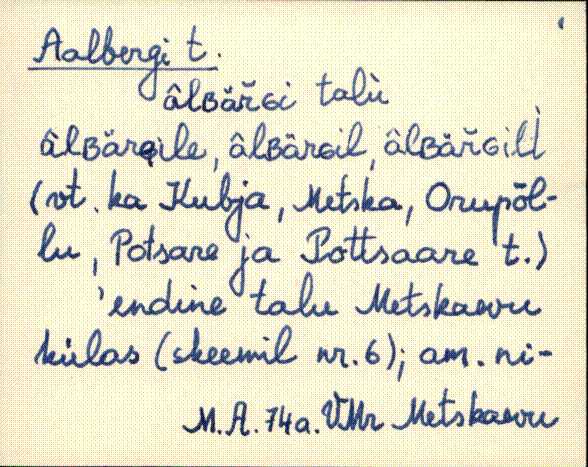 Aalbergi t.
âlʙäŕɢi talù
âlʙärɢile, âlʙärɢil, âlʙäŕɢilt̀
(vt. ka Kubja, Metska, Orupõl-
lu, Potsare ja Pottsaare t.)
'endine talu Metskaevu
külas (skeemil nr. 6); am. ni-
M.A. 74a. VMr Metskaevu